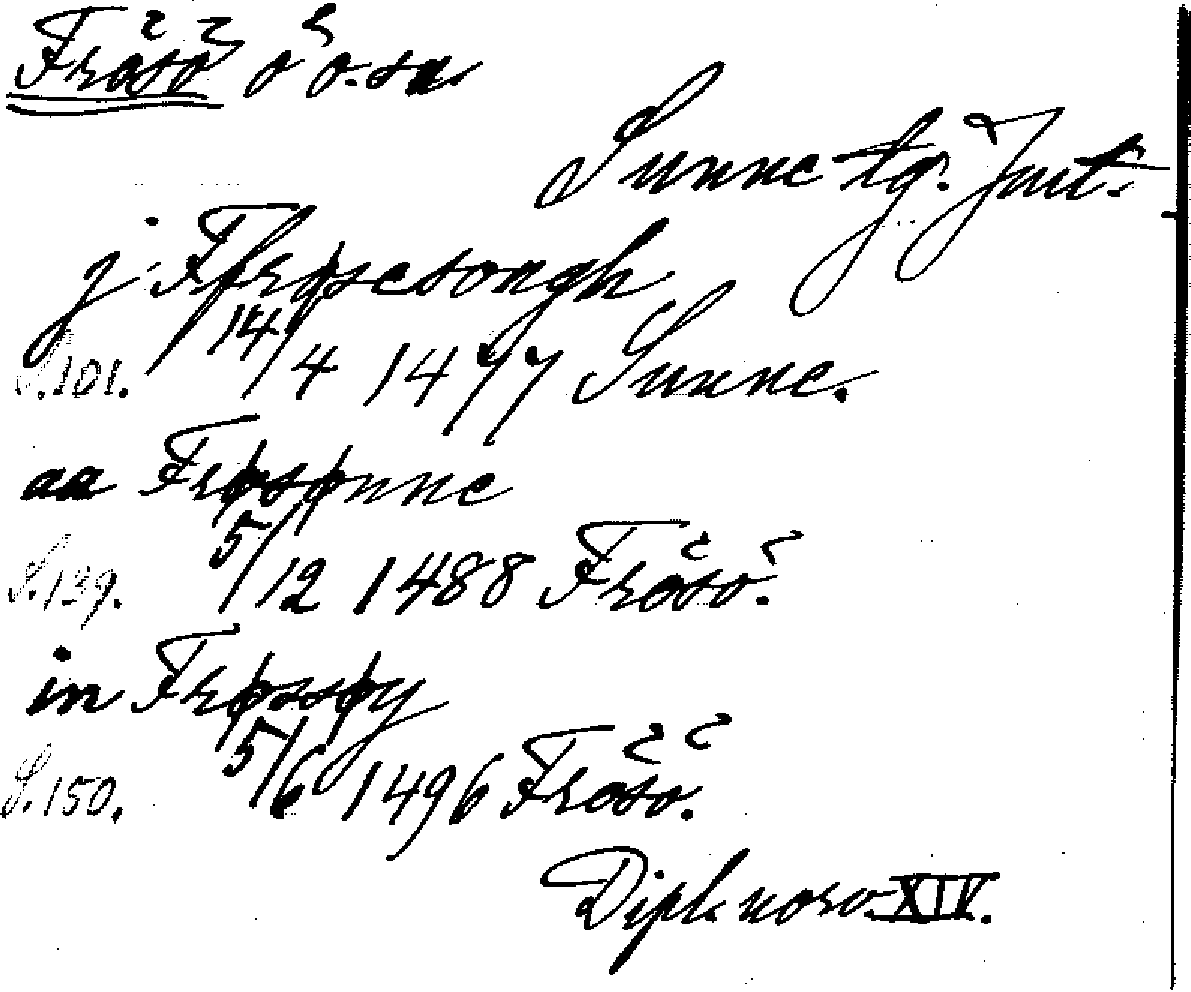 Frösö ö o. sn
Sunne tg. Jmt.
j Ffrøsesongh
S. 101. 14/4 1477 Sunne.
aa Frøsønne
S. 139. 5/12 1488 Frösö.
in Frøssøy
S. 150. 5/6 1496 Frösö.
Dipl. norv. XIV.